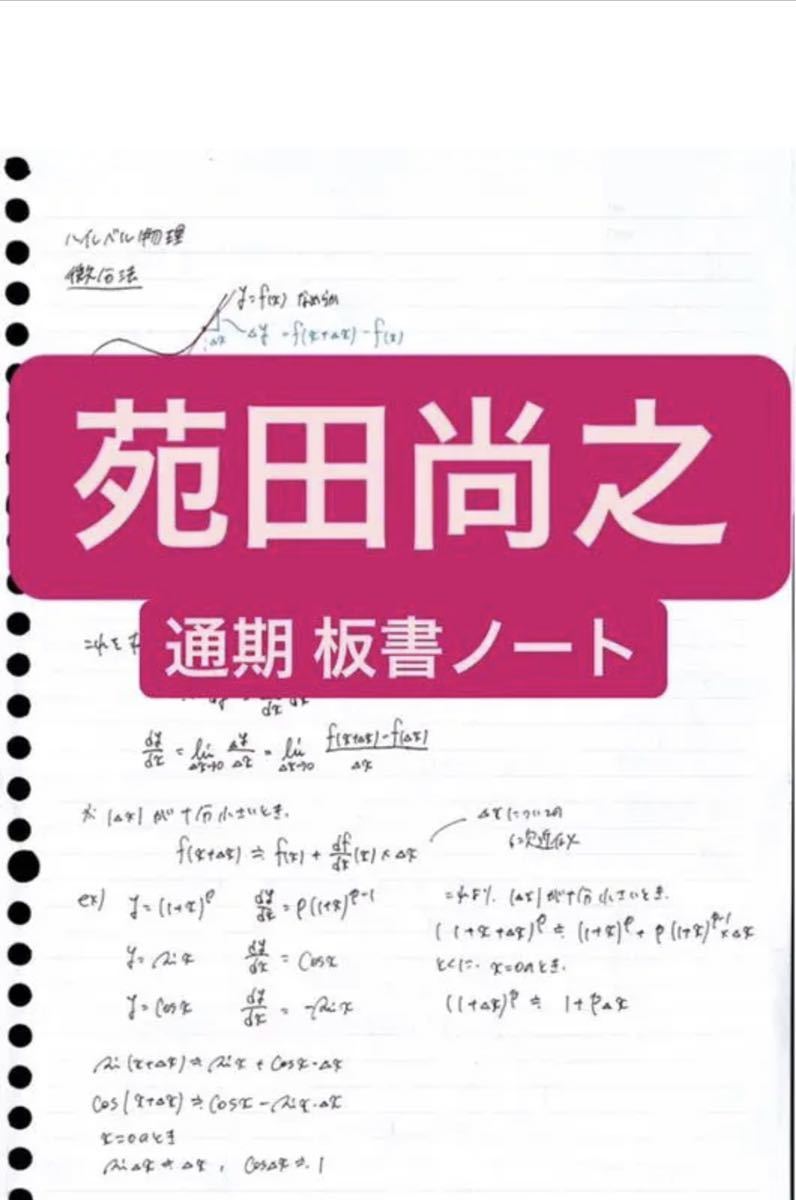 ハイレベル物理
微分法
y=f(x) なめらか
Δx
Δy = f(x+Δx) - f(x)
苑田尚之
通期 板書ノート
これを
dy/dx = lim Δx→0 Δy/Δx = lim Δx→0 f(x+Δx) - f(Δx) / Δx
|Δx| が十分小さいとき.
Δxについての
1次近似
f(x+Δx) ≒ f(x) + df/dx (x) × Δx
ex) y=(1+x)^p dy/dx = p(1+x)^p-1
y=sin x dy/dx = cos x
y=cos x dy/dx = -sin x
これより. |Δx|が十分小さいとき.
(1+x+Δx)^p ≒ (1+x)^p + p(1+x)^p-1 × Δx
とくに. x=0のとき.
(1+Δx)^p ≒ 1+pΔx
sin(x+Δx) ≒ sin x + cos x・Δx
cos(x+Δx) ≒ cos x - sin x・Δx
x=0のとき
sin Δx ≒ Δx , cos Δx ≒ 1